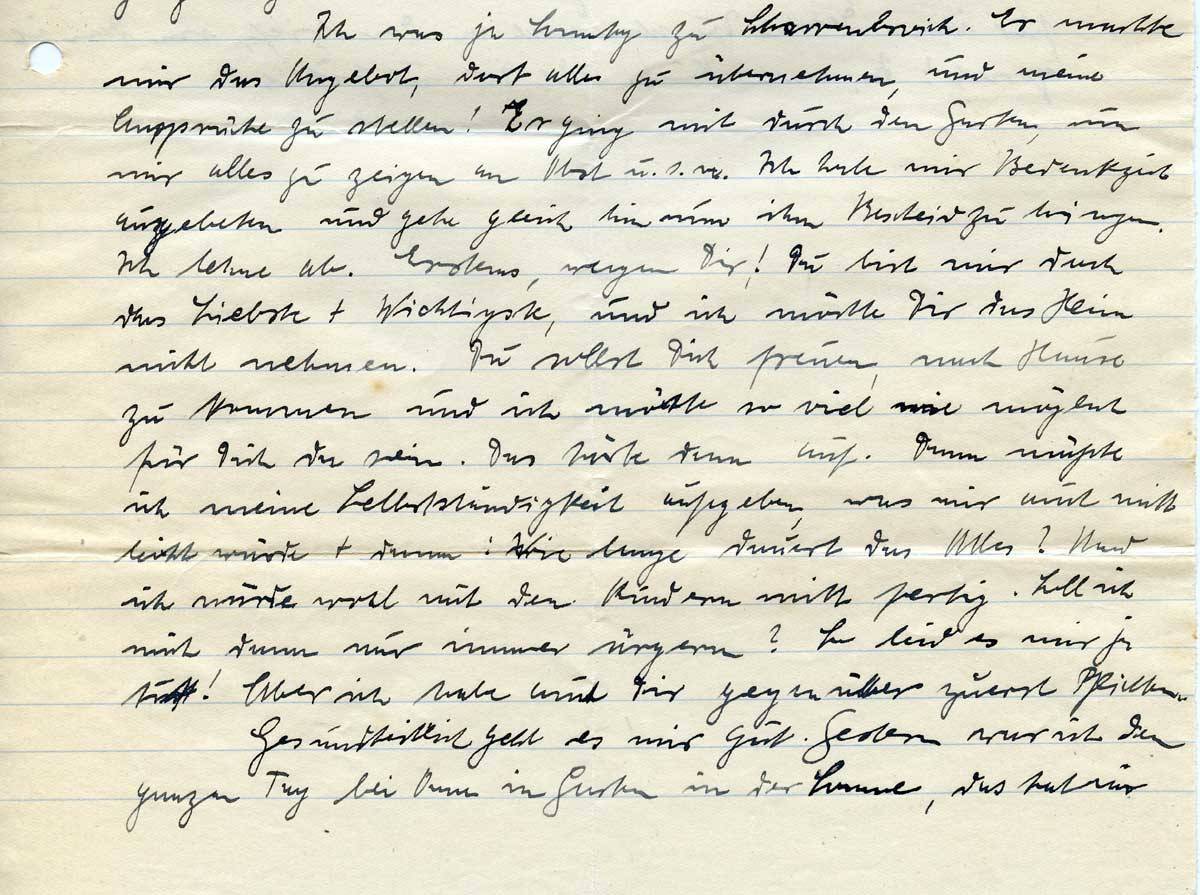 Ich war ja Sonntag zu Scharrenbroich. Er machte
mir das Angebot, dort alles zu übernehmen, und meine
Ansprüche zu stellen! Er ging mit durch den Garten, um
mir alles zu zeigen an Obst u.s.w. Ich habe mir Bedenkzeit
ausgebeten und gehe gleich hin um ihm Bescheid zu bringen.
Ich lehne ab. Erstens, wegen Dir! Du bist mir doch
das Liebste + Wichtigste, und ich möchte Dir das Heim
nicht nehmen. Du sollst Dich freuen, nach Hause
zu kommen und ich möchte so viel wie möglich
für Dich da sein. Das hörte dann auf. Dann müßte
ich meine Selbstständigkeit aufgeben, was mir auch nicht
leicht würde + dann: Wie lange dauert das Alles? Und
ich würde wohl mit den Kindern nicht fertig. Soll ich
mich dann nur immer ärgern? So leid es mir ja
tut! Aber ich habe auch Dir gegenüber zuerst Pflichten.
Gesundheitlich geht es mir gut. Gestern war ich den
ganzen Tag bei im Garten in der Sonne, das hat mir